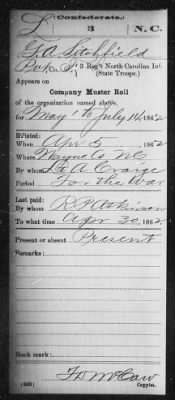 (Confederate.)
L 3 N.C.
G. A. Litchfield
Pvt, Co. F, 3 Reg't North Carolina Inf.
(State Troops.)
Appears on
Company Muster Roll
of the organization named above,
for May 1 to July 14, 1862.
Enlisted:
When Apr 5, 1862
Where Wayne Co. N.C.
By whom A. Craige
Period For the War
Last paid:
By whom R. P. Atkinson
To what time Apr. 30, 1862
Present or absent Present
Remarks:
Book mark:
(642) Copyist.